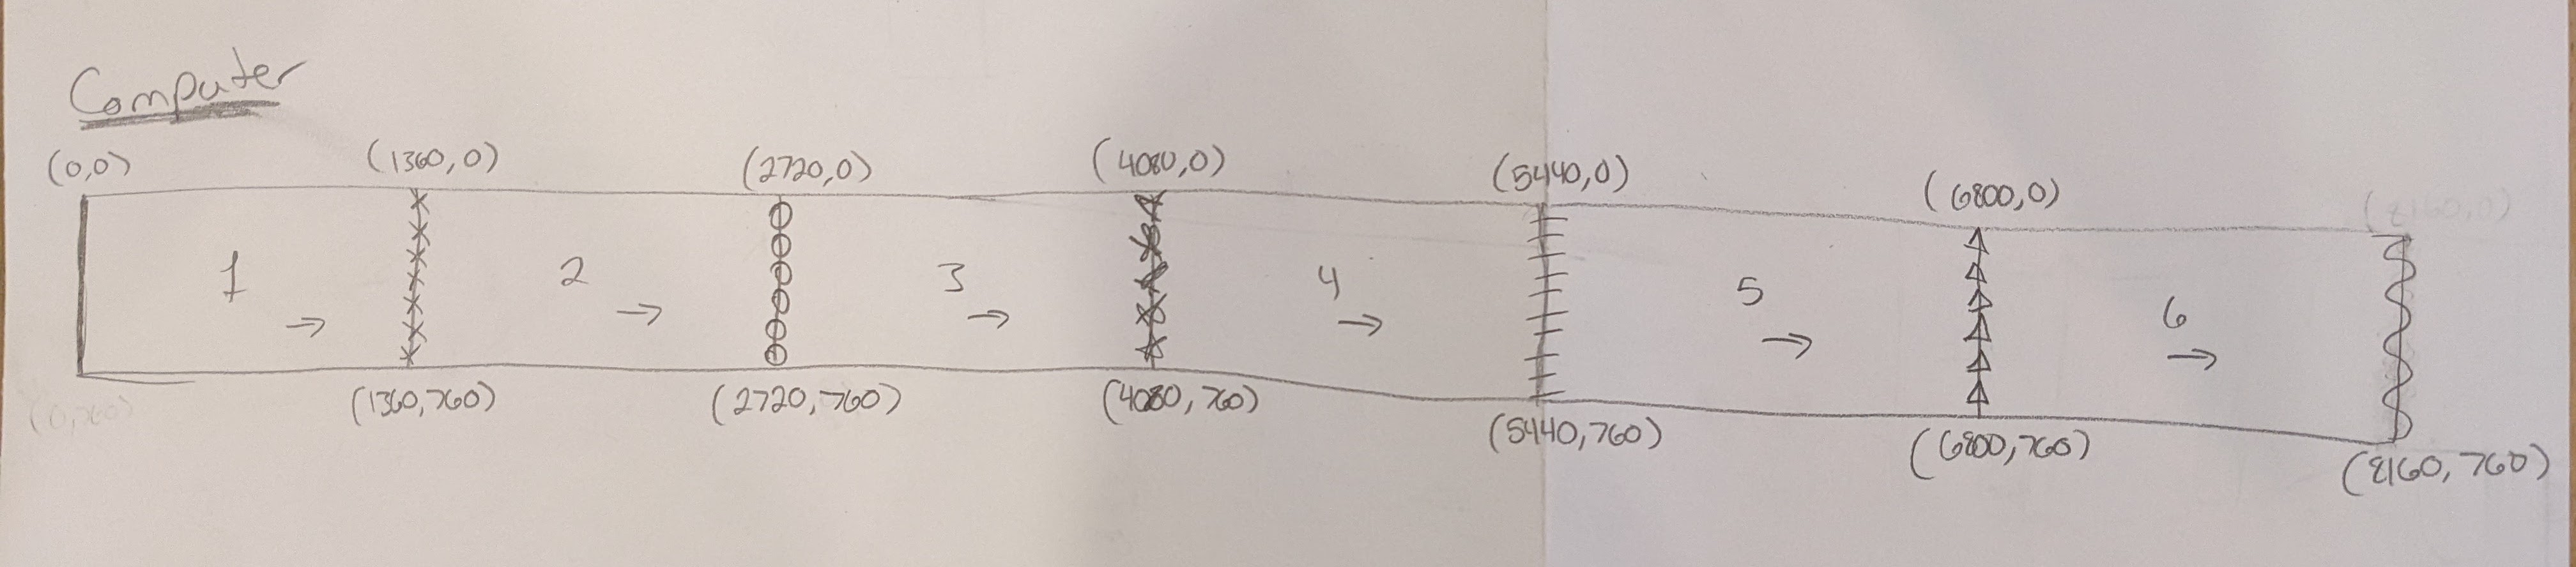 Computer
(0,0) (1360,0) (2720,0) (4080,0) (5440,0) (6800,0) (8160,0)
1 2 3 4 5 6
(0,760) (1360,760) (2720,760) (4080,760) (5440,760) (6800,760) (8160,760)